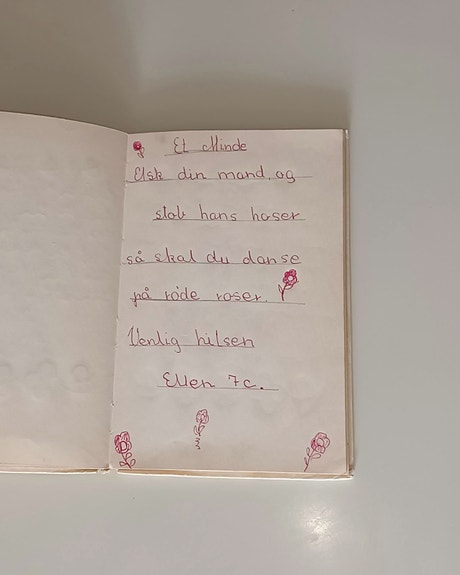 Et Minde
Elsk din mand, og
stop hans hoser
så skal du danse
på røde roser.
Venlig hilsen
Ellen 7c.